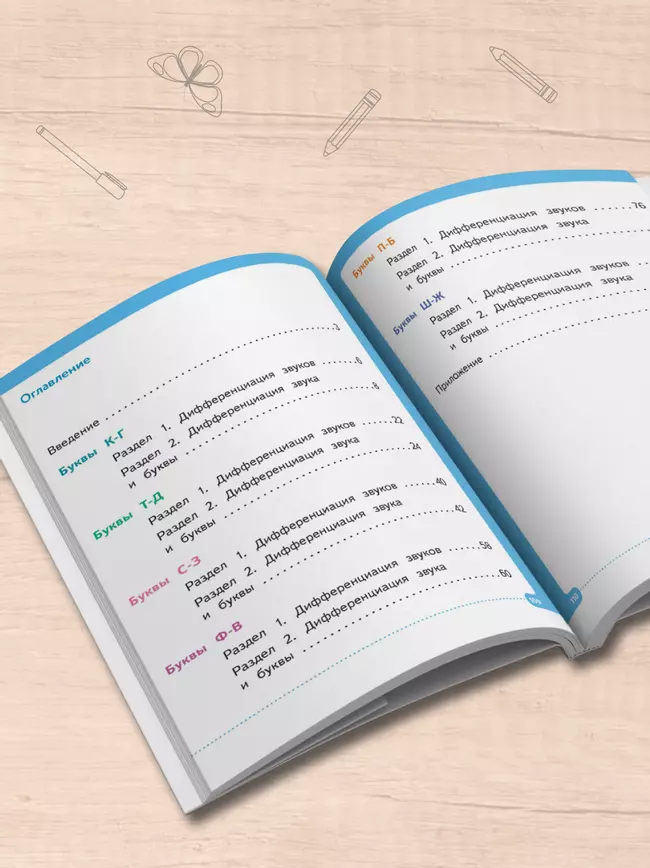 Оглавление
Введение 3
Буквы К-Г
Раздел 1. Дифференциация звуков 6
Раздел 2. Дифференциация звука
и буквы 8
Буквы Т-Д
Раздел 1. Дифференциация звуков 22
Раздел 2. Дифференциация звука
и буквы 24
Буквы С-З
Раздел 1. Дифференциация звуков 40
Раздел 2. Дифференциация звука
и буквы 42
Буквы Ф-В
Раздел 1. Дифференциация звуков 58
Раздел 2. Дифференциация звука
и буквы 60
109
Буквы П-Б
Раздел 1. Дифференциация звуков 76
Раздел 2. Дифференциация звука
и буквы
Буквы Ш-Ж
Раздел 1. Дифференциация звуков
Раздел 2. Дифференциация звука
и буквы
Приложение
110